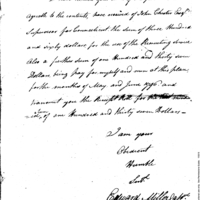 agreable to the contract, have received of John Chester Esqr
Supervisor for Connecticut the sum of three Hundred
and sixty dollars for the use of the Recruiting Service
Also a further sum of one Hundred and thirty seven
Dollars being pay for myself and men at this place,
for the months of May and June 1796 and
transmit you the Receipt Roll for
of one Hundred and thirty seven Dollars—
I am your
Obedient
Humble
Sert
Edward Miller Capt.